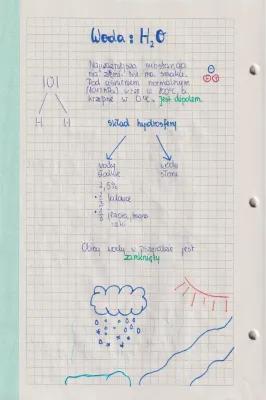 Woda: H₂O
Najważniejsza substancja
na ziemi. Nie ma smaku.
Pod ciśnieniem normalnym
(1013 hPa) wrze w 100°C, a
krzepnie w 0°C. Jest dipolem.
|O|
H H
skład hydrosfery
wody słodkie
wody słone
2,5%
lodowce
rzeki
Obieg wody w przyrodzie jest
zamknięty